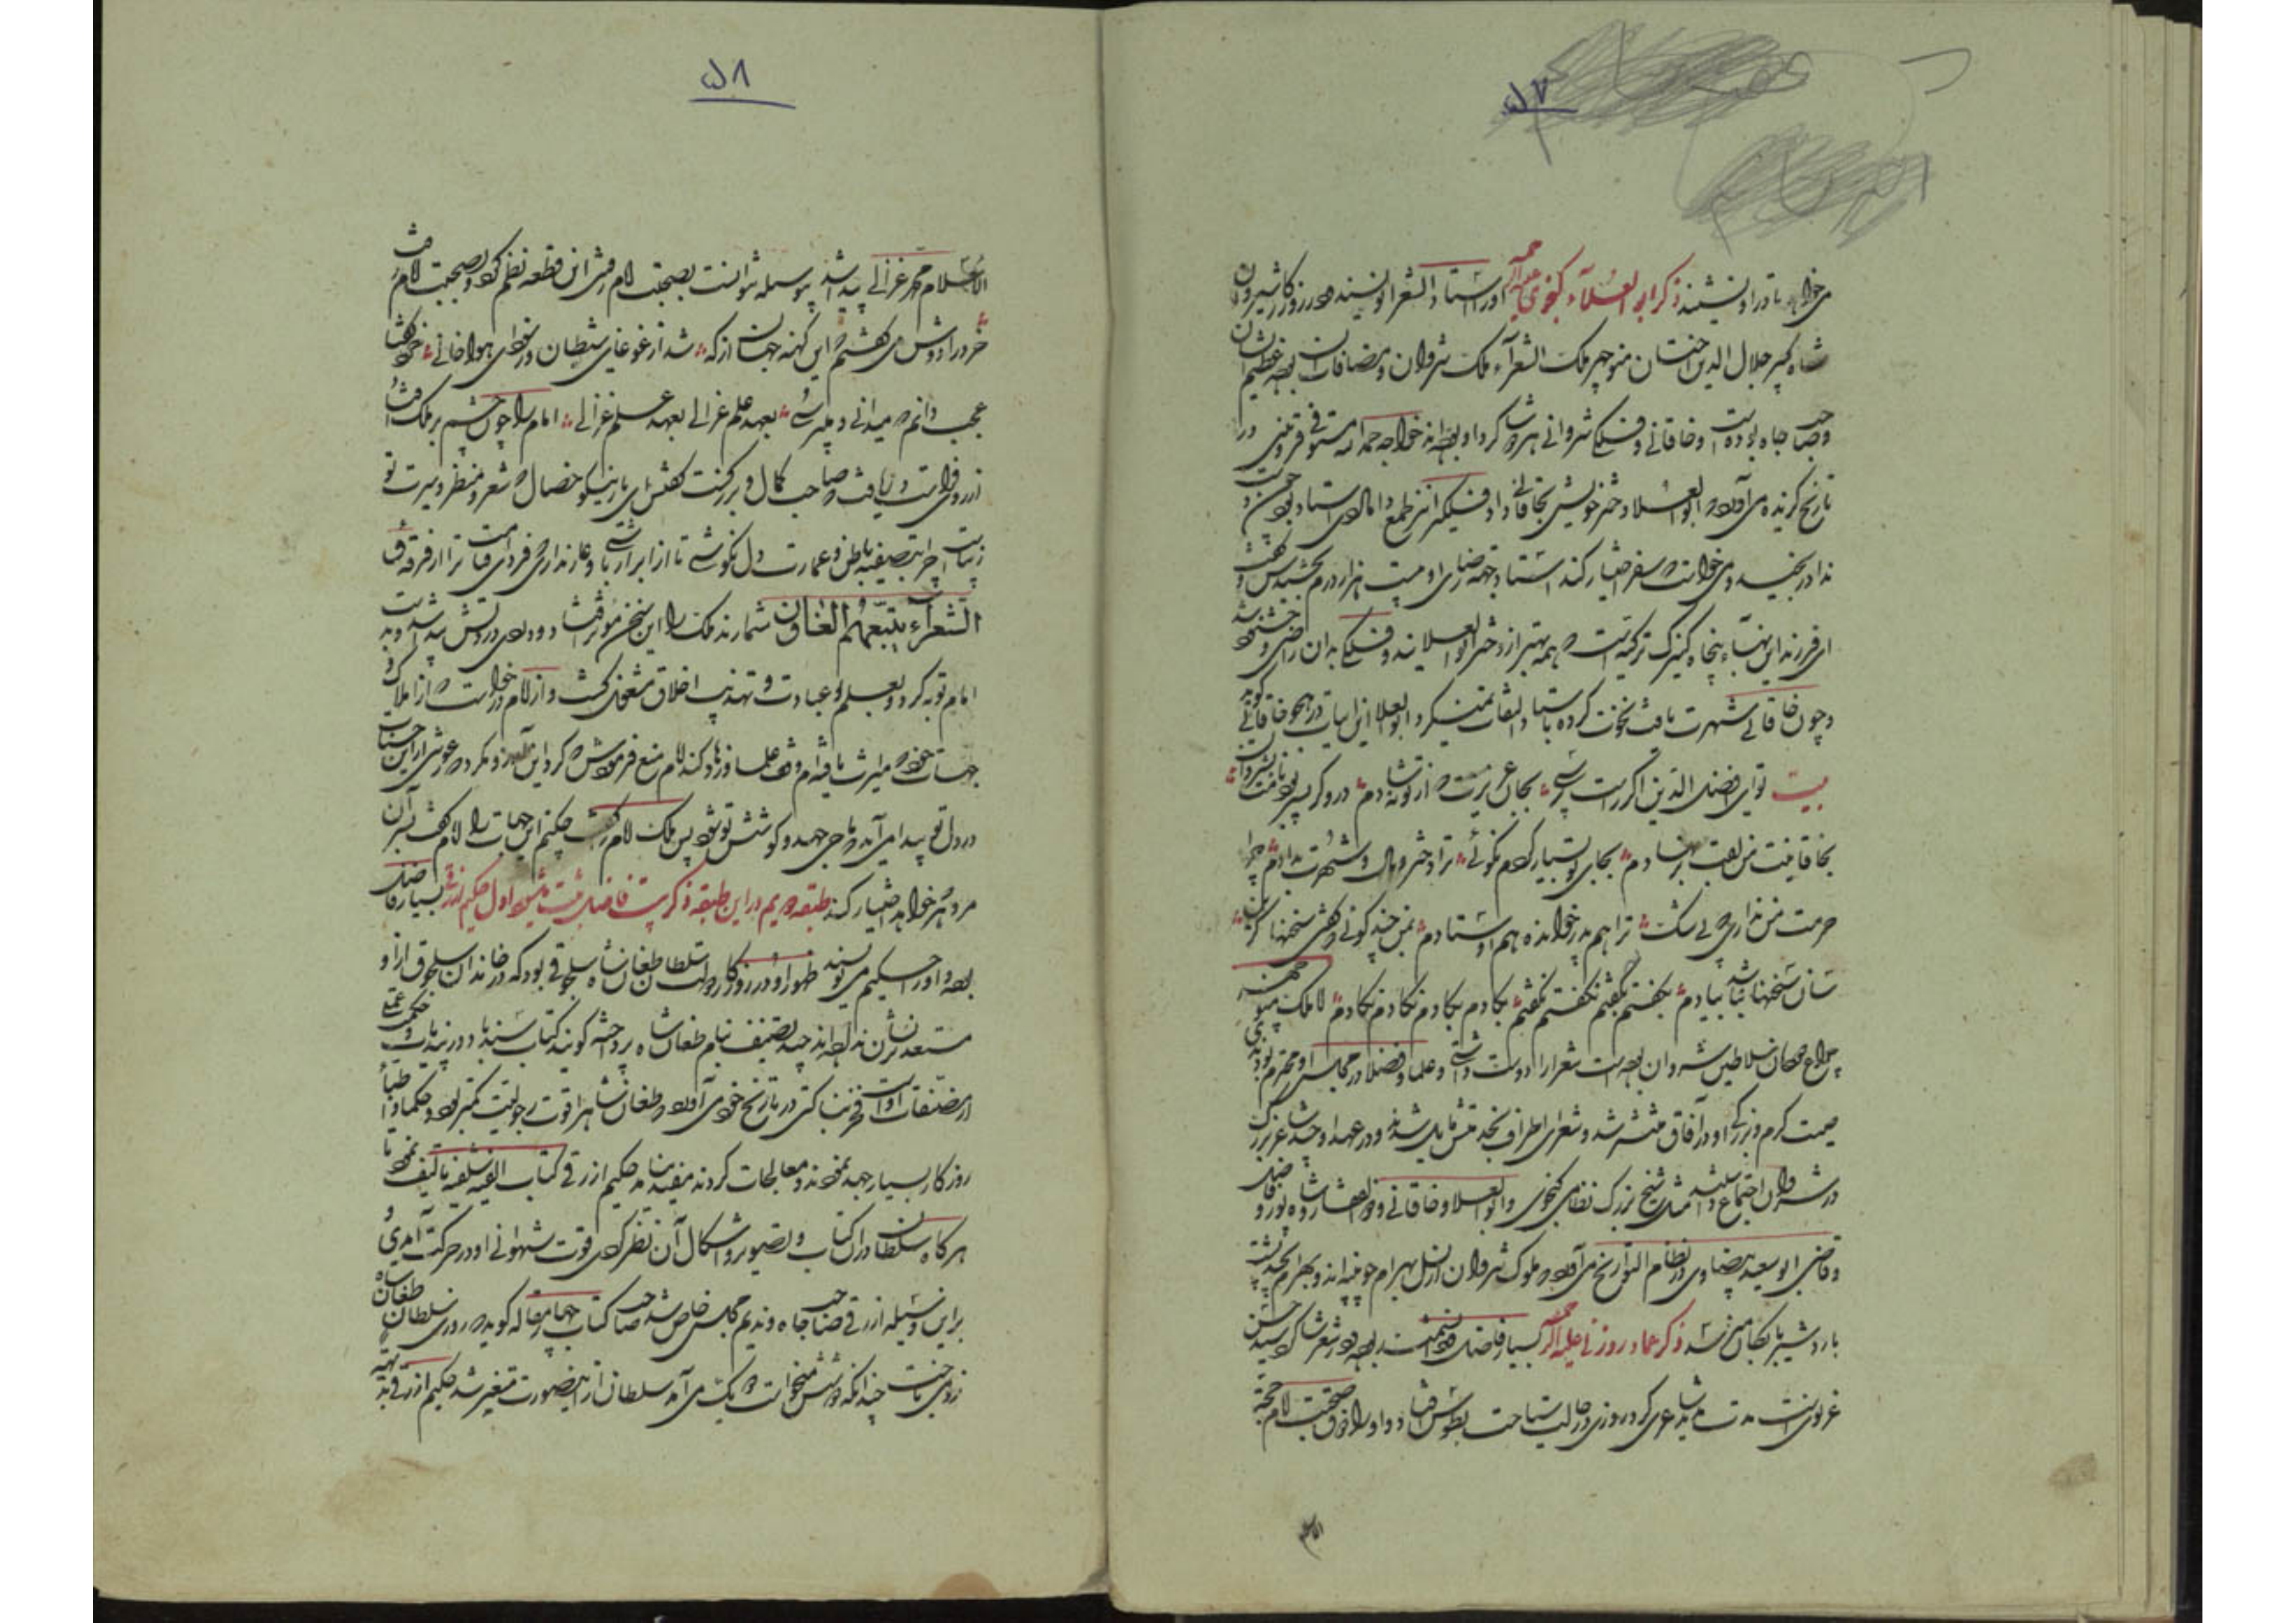 ۵۷
می خواهد تا در او نشیند ذکر ابو العلاء کنجوی علیه الرحمه او را استاد الشعرا نویسند و در روزگار شیروان
شاه کبیر جلال الدین اختسان منوچهر ملک الشعرآء ملک شروان و مضافات آن بوده عظیم الشان
و صاحب جاه بوده است و خاقانی و فلکی شروانی هر دو شاگرد او بوده اند خواجه حمد الله مستوفی قزوینی در
تاریخ گزیده می آورد که ابو العلا دختر خویش بخاقانی داد فلکی را نیز طمع دامادی استاد بود چون دست
نداد رنجید و می خواست که سفر اختیار کند استاد جهة رضای او بیست هزار درم بخشیدش و گفت
ای فرزند این بهاء پنجاه کنیزک ترکیه است که همه بهتر از دختر ابو العلا یند و فلکی بدان راضی و خشنود شد
و چون خاقانی شهرت یافت نخوت کرده باستاد التفات نمیکرد ابو العلا این ابیات در هجو خاقانی گوید
بیت تو ای افضل الدین اگر راست پرسی بجان عزیزت که از تو نه شادم دروگر پسر بود نامت بشروان
بخاقانیت من لقب بر نهادم بجای تو بسیار کردم نکوئی ترا دختر و مال و شهرت بدادم چرا
حرمت من نداری بی شک ترا هم پدر خوانده هم اوستادم بمن چند گوئی که گفتی سخنها کزین
سان سخنها نباشد بیادم بگفتم بگفتم نگفتم نگفتم بگادم بگادم نگادم نگادم اما ملک منوچهر
چراغ دودمان سلاطین شروان بوده است شعرا را دوست داشتی و علما و فضلا در مجلس او محترم بودندی
صیت کرم و بزرگی او در آفاق منتشر شد و شعرای اطراف بخدمتش مایل شدند و در عهد او چند شاعر بزرگ
در شروان اجتماع داشتند مثل شیخ بزرگ نظامی کنجوی و ابو العلا و خاقانی و ذوالفقار و شاهپور و فاضل
و قاضی ابو سعید بیضاوی در نظام التواریخ می آورد که ملوک شروان از نسل بهرام چوبینه اند و بهرام بچند پشت
باردشیر بابکان میرسد ذکر عماد زوزنی علیه الرحمه بسیار فاضل و دانشمند بوده در شعر شاگرد سید حسن
غزنویست مدت مدید شاعری کرد روزی در حالت سیاحت بطوس افتاد و او را ذوق صحبت امام حجة
الاسلام
۵۸
الاسلام محمد غزالی پیدا شد بوسیله توانست بصحبت امام رفتن این قطعه نظم کرد و بصحبت امام رفت
خرد را دوش می گفتم که این کهنه جهان از که شد از غوغای شیطان و ز سودای هوا خالی خرد گفتا
عجب دانم که میدانی و می پرسی بعهد علم غزالی بعهد علم غزالی امام را چون چشم بر ملک افتاد
از روی فراست دریافت که صاحب کمال و بزرگست گفتش ای یار نیکو خصال که شعر و منظر و سیرت تو
زیباست چرا بتصفیه باطن و عمارت دل نکوشی تا از ابرار باشی و عار نداری که فردای قیامت ترا از فرقه ق
الشعراء یتبعهم الغاوون شمارند ملک را این سخن موثر افتاد و دردی در دلش پیدا شد و بدست
امام توبه کرد و بعلم و عبادت و تهذیب اخلاق مشغول گشت و از امام درخواست که از املاک و
جهات خود که میراث یافته ام وقف علما و زهاد کند امام منع فرمودش که کرد این
در دل تو پیدا می آمد که ماحی جهد و کوشش تو شود پس ملک امام را گفت چکنم این جهات را امام گفت بر سر آن
مرد هر خواهد اختیار کند طبقه دویم در این طبقه ذکر بیست فاضل ثبت میشود اول حکیم ازرقی بسیار فاضل
بوده و او را حکیم می نویسند ظهور او در روزگار دولت سلطان طغانشاه سلجوقی بود که در خاندان سلجوق از او
مستعد تر نشان نداده اند چند تصنیف بنام طغانشاه پرداخته گویند کتاب سندباد در پند و حکمت عملی
از مصنفات اوست فخر بناکتی در تاریخ خود می آورد که طغانشاه را قوت رجولیت کمتر بود و حکما و اطبا
روزگار بسیار جهد نمودند و معالجات کردند مفید نیامد حکیم ازرقی کتاب الفیه شلفیه تالیف نمود تا
هر گاه سلطان در آن کتاب و تصویر و اشکال آن نظر کردی قوت شهوانی او در حرکت آمدی و
براین وسیله ازرقی صاحب جاه و ندیم مجلس خاص شد صاحب کتاب چهار مقاله گوید که روزی سلطان طغانشاه
نرد می باخت چندانکه دو شش میخواست دو یک می آمد سلطان از این صورت متغیر شد حکیم ازرقی بدیهه